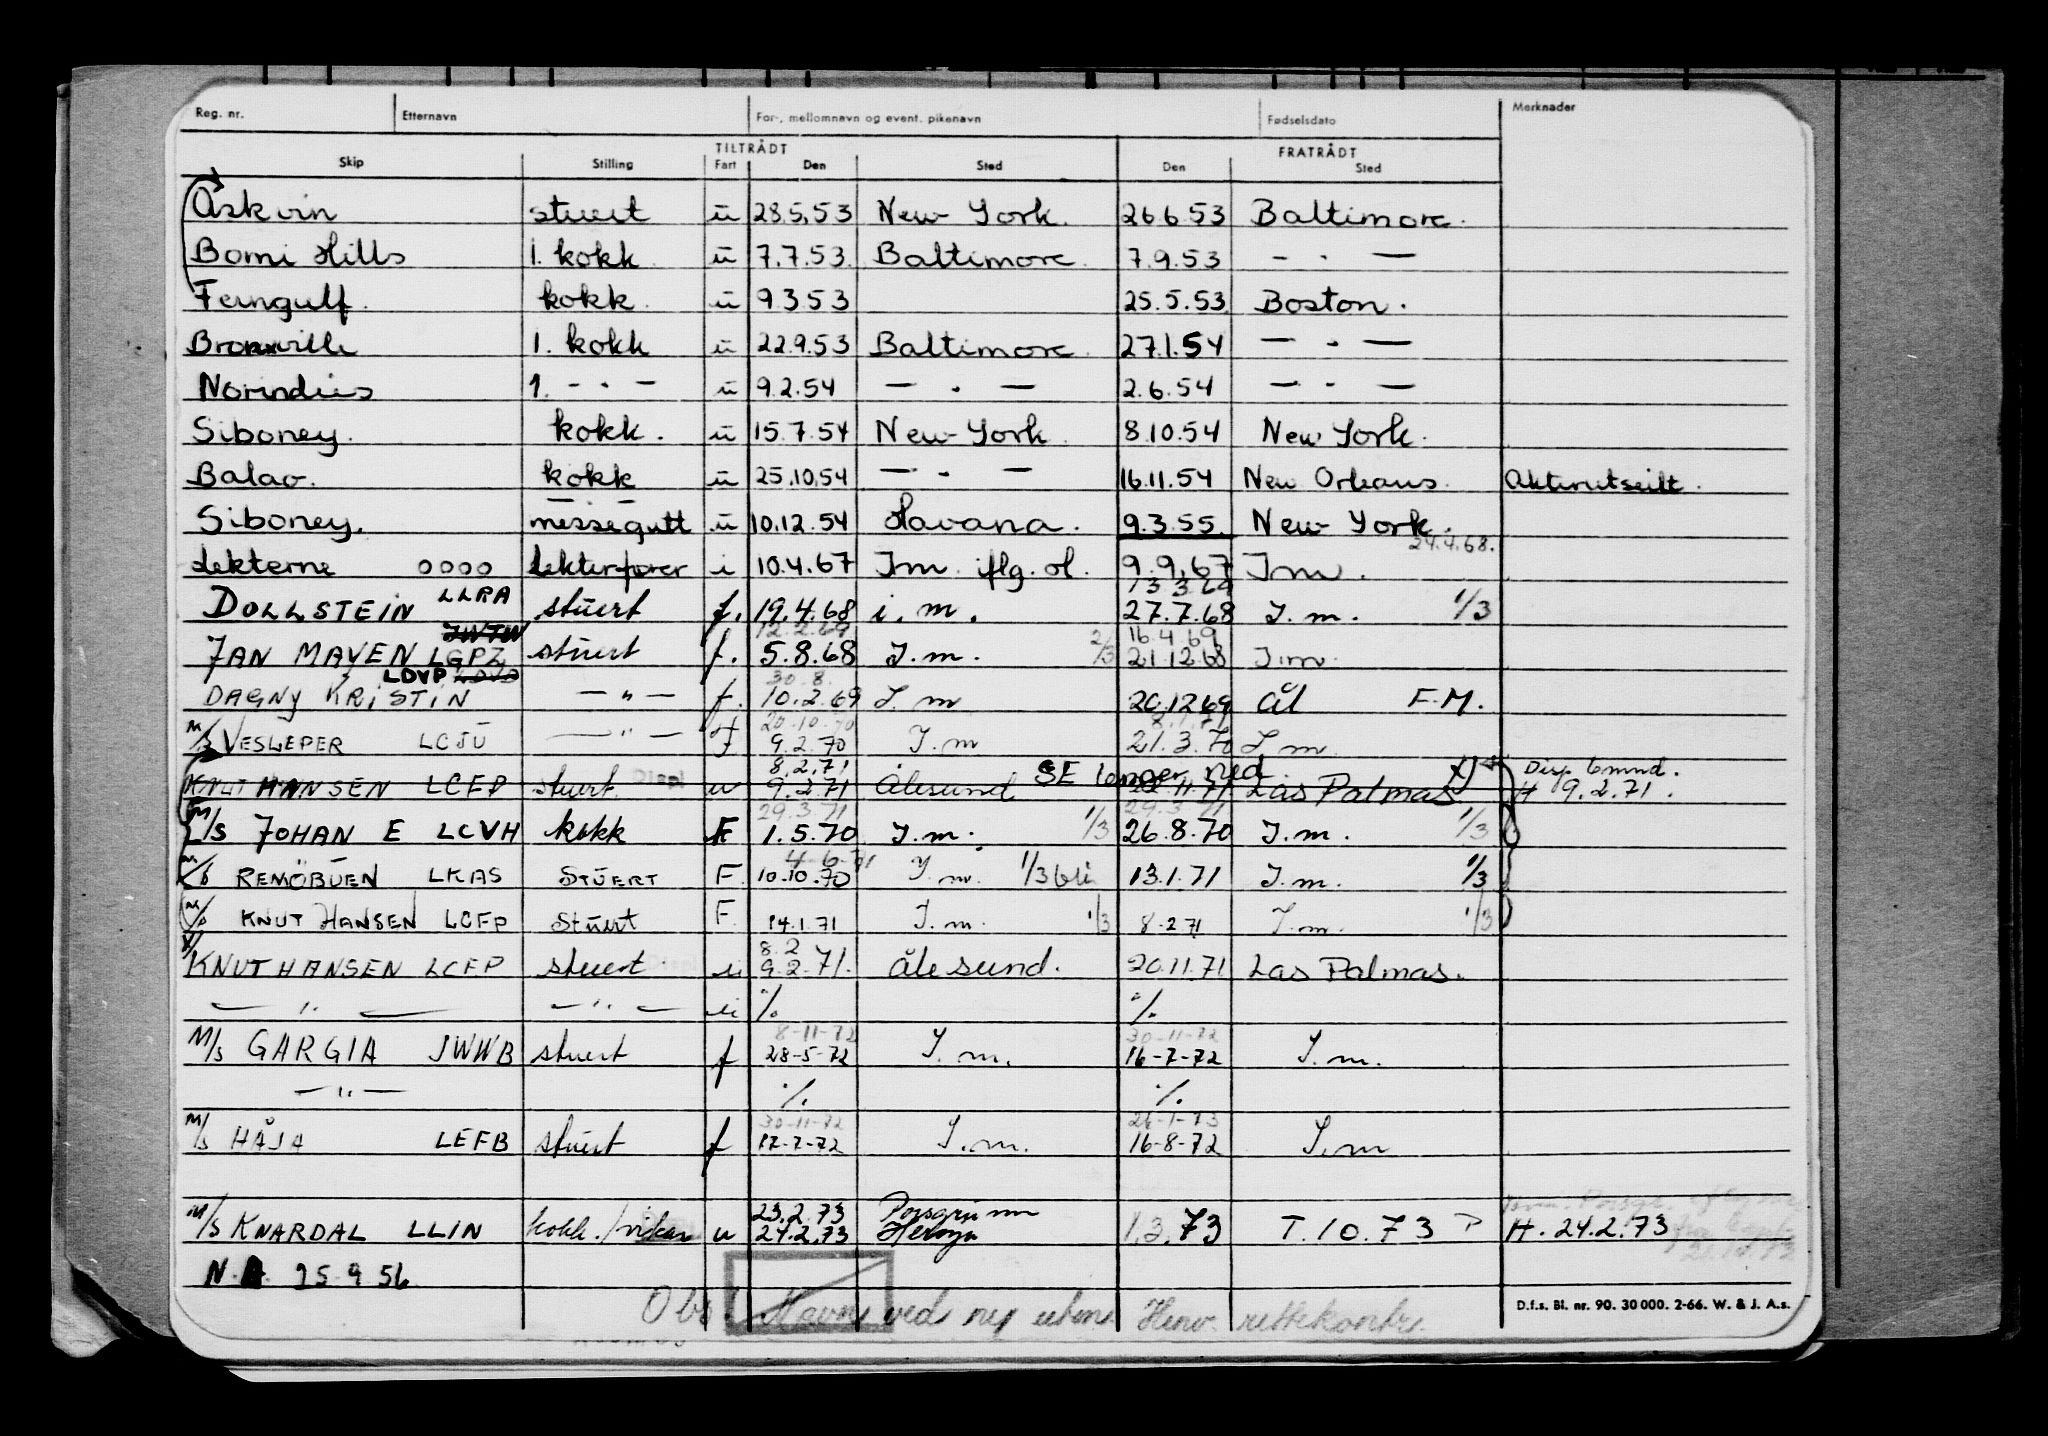 Reg. nr. Etternavn For-, mellomnavn og event. pikenavn Fødselsdato Merknader
TILTRÅDT FRATRÅDT
Skip Stilling Fart Den Sted Den Sted
Askvin stuert u 28.5.53 New York. 26.6.53 Baltimore.
Bomi Hills 1. kokk u 7.7.53. Baltimore 7.9.53 — · —
Ferngulf. kokk. u 9353 25.5.53 Boston.
Bronxville 1. kokk u 22.9.53 Baltimore. 27.1.54 — · —
Norindies 1. — · — u 9.2.54 — · — 2.6.54 — · —
Siboney. kokk. u 15.7.54 New York. 8.10.54 New York.
Balao. kokk u 25.10.54 — · — 16.11.54 New Orleans. Akterutseilt.
Siboney. messegutt u 10.12.54 Havana. 9.3.55. New York.
24.4.68.
Lekterne 0000 lekterfører i 10.4.67 Im iflg. ol. 9.9.67 Im.
13 3 69
DOLLSTEIN LLRA stuert f. 19.4.68 i. m. 27.7.68 I. m. 1/3
JWTW 12.2.69 16.4.69
JAN MAYEN LGPZ stuert f. 5.8.68 I. m. 2/3 21.12.68 I.m.
LDVP 30.8.
DAGNY KRISTIN — " — f. 10.2.69 I. m 20.12.69 Ål F.M.
20.10.70 8.1.71
M/S VESLEPER LCJU — " — f 9.2.70 I.m 21.3.70 I m
8.2.71 SE lenger ned x) Disp 6mnd.
KNUT HANSEN LCFP stuert u 9.2.71 Ålesund 20.11.71 Las Palmas H 9.2.71.
29.3.71 29.3.71
M/S JOHAN E LCVH kokk F 1.5.70 I.m. 1/3 26.8.70 I.m. 1/3
4-6-71
M/S REMÖBUEN LKAS STUERT F. 10.10.70 I. m. 1/3 13.1.71 I.m. 1/3
M/S KNUT HANSEN LCFP Stuert F. 14.1.71 I.m. 1/3 8.2.71 I.m. 1/3
x/ 8.2
KNUT HANSEN LCFP stuert u 9.2.71. Ålesund. 20.11.71 Las Palmas.
— " — — " — u ·/. ·/.
8-11-72 30-11-72
M/S GARGIA JWWB stuert f 28-5-72 I.m. 16-7-72 I.m.
— " — ·/. ·/.
30-11-72 26-1-73
M/S HÅJA LEFB stuert f 17-7-72 I.m. 16-8-72 I.m
23.2.73 Porsgrunn
M/S KNARDAL LLIN kokk./vikar u 24.2.73 Herøya 1.3.73 T.10.73 P H. 24.2.73
N.A. 25 9 56
Obs! Havn ved ny Henv. rettekontr.
D.f.s. Bl. nr. 90. 30 000. 2-66. W. & J. A.s.